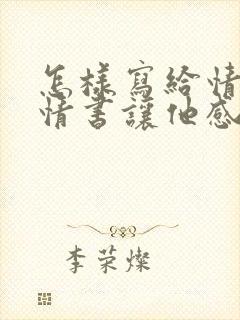 怎樣寫給情
情書讓他感
李荣燦